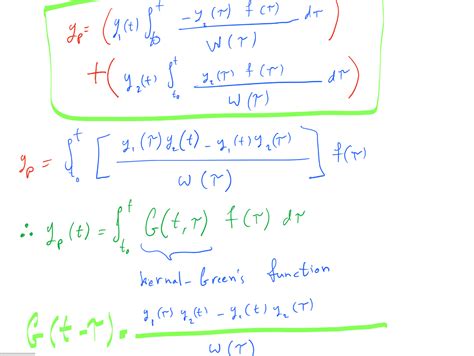 y_p = ( y_1(t) ∫_{t_0}^{t} -y_2(τ) f(τ) / W(τ) dτ )
+ ( y_2(t) ∫_{t_0}^{t} y_2(τ) f(τ) / W(τ) dτ )
y_p = ∫_{t_0}^{t} [ y_1(τ) y_2(t) - y_1(t) y_2(τ) / W(τ) ] f(τ)
∴ y_p(t) = ∫_{t_0}^{t} G(t,τ) f(τ) dτ
kernal-Green's function
G(t-τ) = y_1(τ) y_2(t) - y_1(t) y_2(τ) / W(τ)